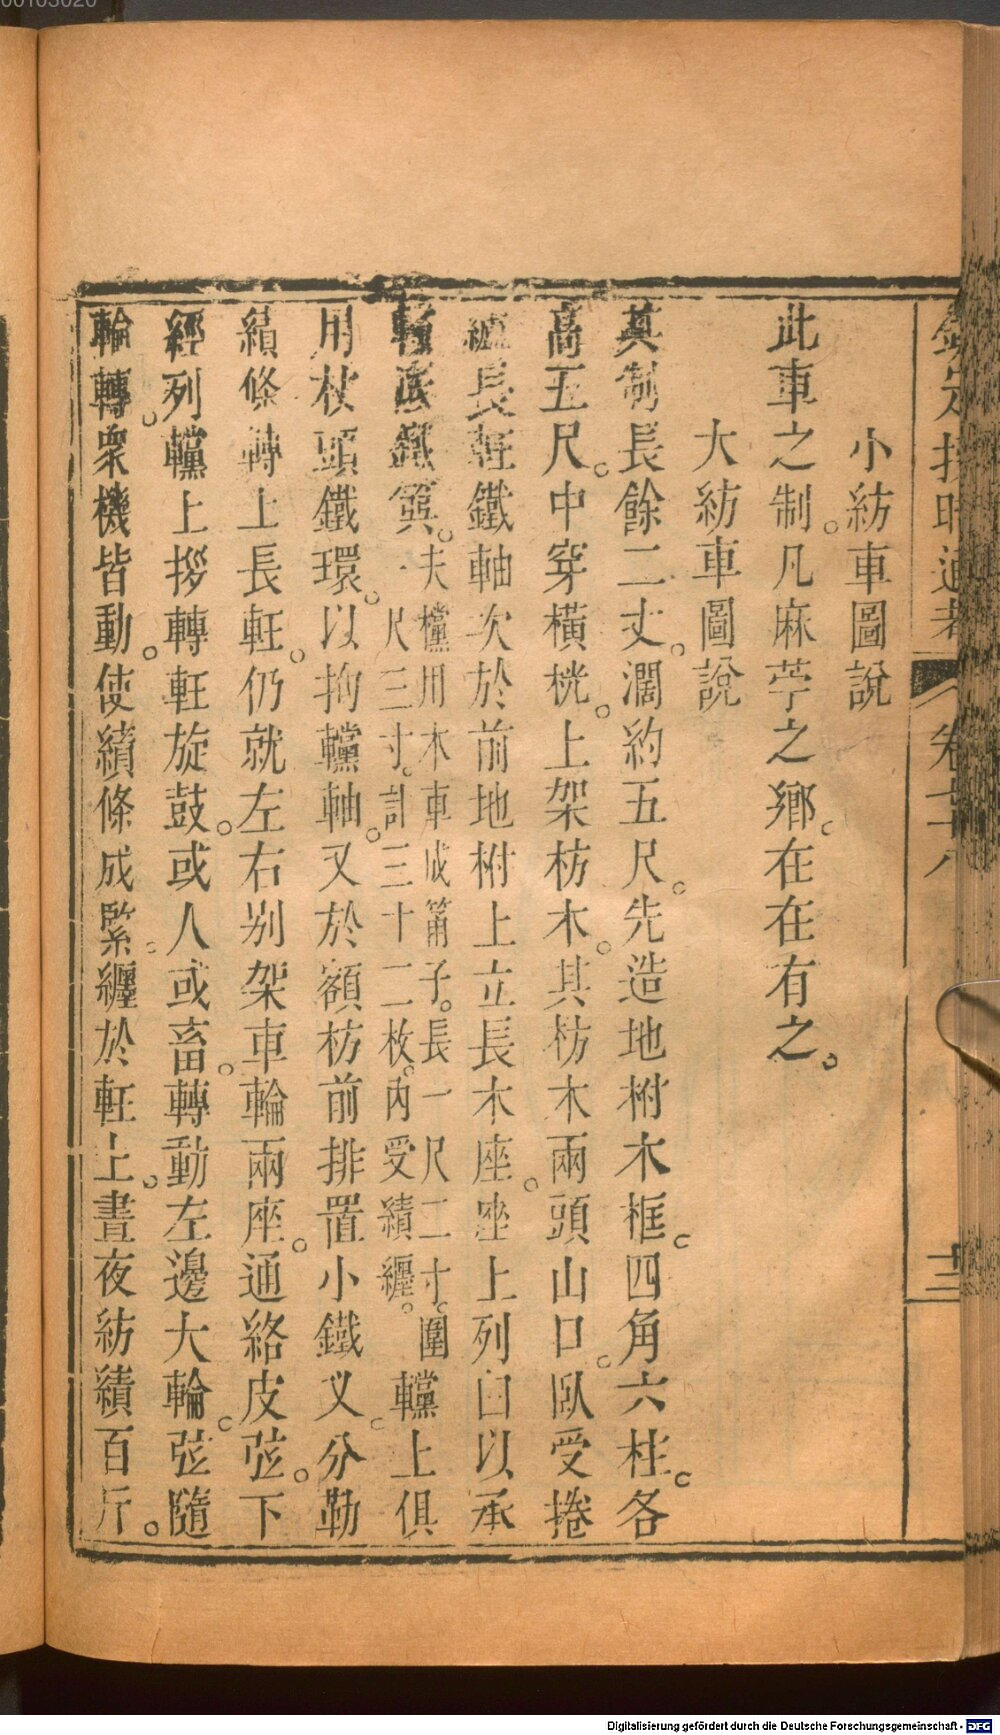 欽定授時通考
卷七十八
十三
小紡車圖說
此車之制。凡麻苧之鄉。在在有之。
大紡車圖說
其制長餘二丈。濶約五尺。先造地柎木框。四角六柱。各
高五尺。中穿橫桄。上架枋木。其枋木兩頭山口。臥受捲
纑長軖鐵軸次於前地柎上立長木座。座上列臼以承
𨏔底鐵簨。夫𣟄用木車成筩子。長一尺二寸。圍一尺三寸。計三十二枚。內受績纏。𨏔上俱
用杖頭鐵環。以拘𨏔軸。又於額枋前排置小鐵叉。分勒
績條轉上長軖。仍就左右別架車輪兩座。通絡皮弦。下
經列𨏔上拶轉軖旋鼓。或人或畜。轉動左邊大輪。弦隨
輪轉。衆機皆動。使績條成緊。纏於軖上。晝夜紡績百斤。
00103020
Digitalisierung gefördert durch die Deutsche Forschungsgemeinschaft - DFG